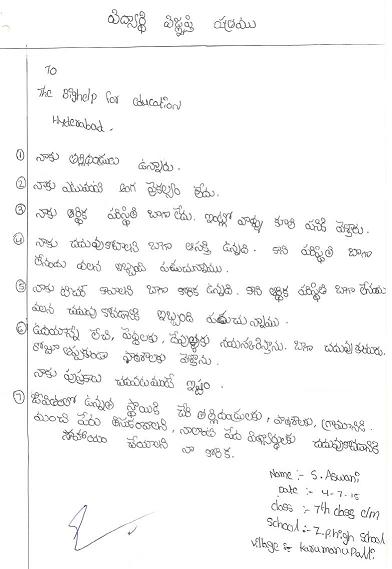 విద్యార్థి విజ్ఞప్తి పత్రము
To
The Bighelp for education
Hyderabad.
① నాకు తల్లిదండ్రులు ఉన్నారు.
② నాకు ఎటువంటి అంగ వైకల్యం లేదు.
③ నాకు ఆర్థిక పరిస్థితి బాగా లేదు. ఇంట్లో వాళ్ళు కూలి పనికి వెళ్తారు.
④ నాకు చదువుకోవాలని బాగా ఆసక్తి ఉన్నది. కాని పరిస్థితి బాగా
లేనందు వలన ఇబ్బంది పడుచున్నాము.
⑤ నాకు టీచర్ కావాలని బాగా కోరిక ఉన్నది. కాని ఆర్థిక పరిస్థితి బాగా లేనందు
వలన చదువు కోవడానికి ఇబ్బంది పడుచున్నాము.
⑥ ఉదయాన్నే లేచి, పెద్దలకు, దేవుళ్ళకు నమస్కరిస్తాను. బాగా చదువుతాను.
రోజూ తప్పకుండా పాఠశాలకు వెళ్తాను.
నాకు పుస్తకాలు చదవడమంటే ఇష్టం.
⑦ జీవితంలో ఉన్నత స్థాయికి చేరి తల్లిదండ్రులకు, పాఠశాలకు, గ్రామానికి
మంచి పేరు తీసుకురావాలని, నాలాంటి పేద విద్యార్థులకు చదువుకోడానికి
సహాయం చేయాలని నా కోరిక.
Name :- S. Aswani
Date :- 4-7-15
Class :- 7th class e/m
School :- Z.P.high school
Village :- Karumanu Palli